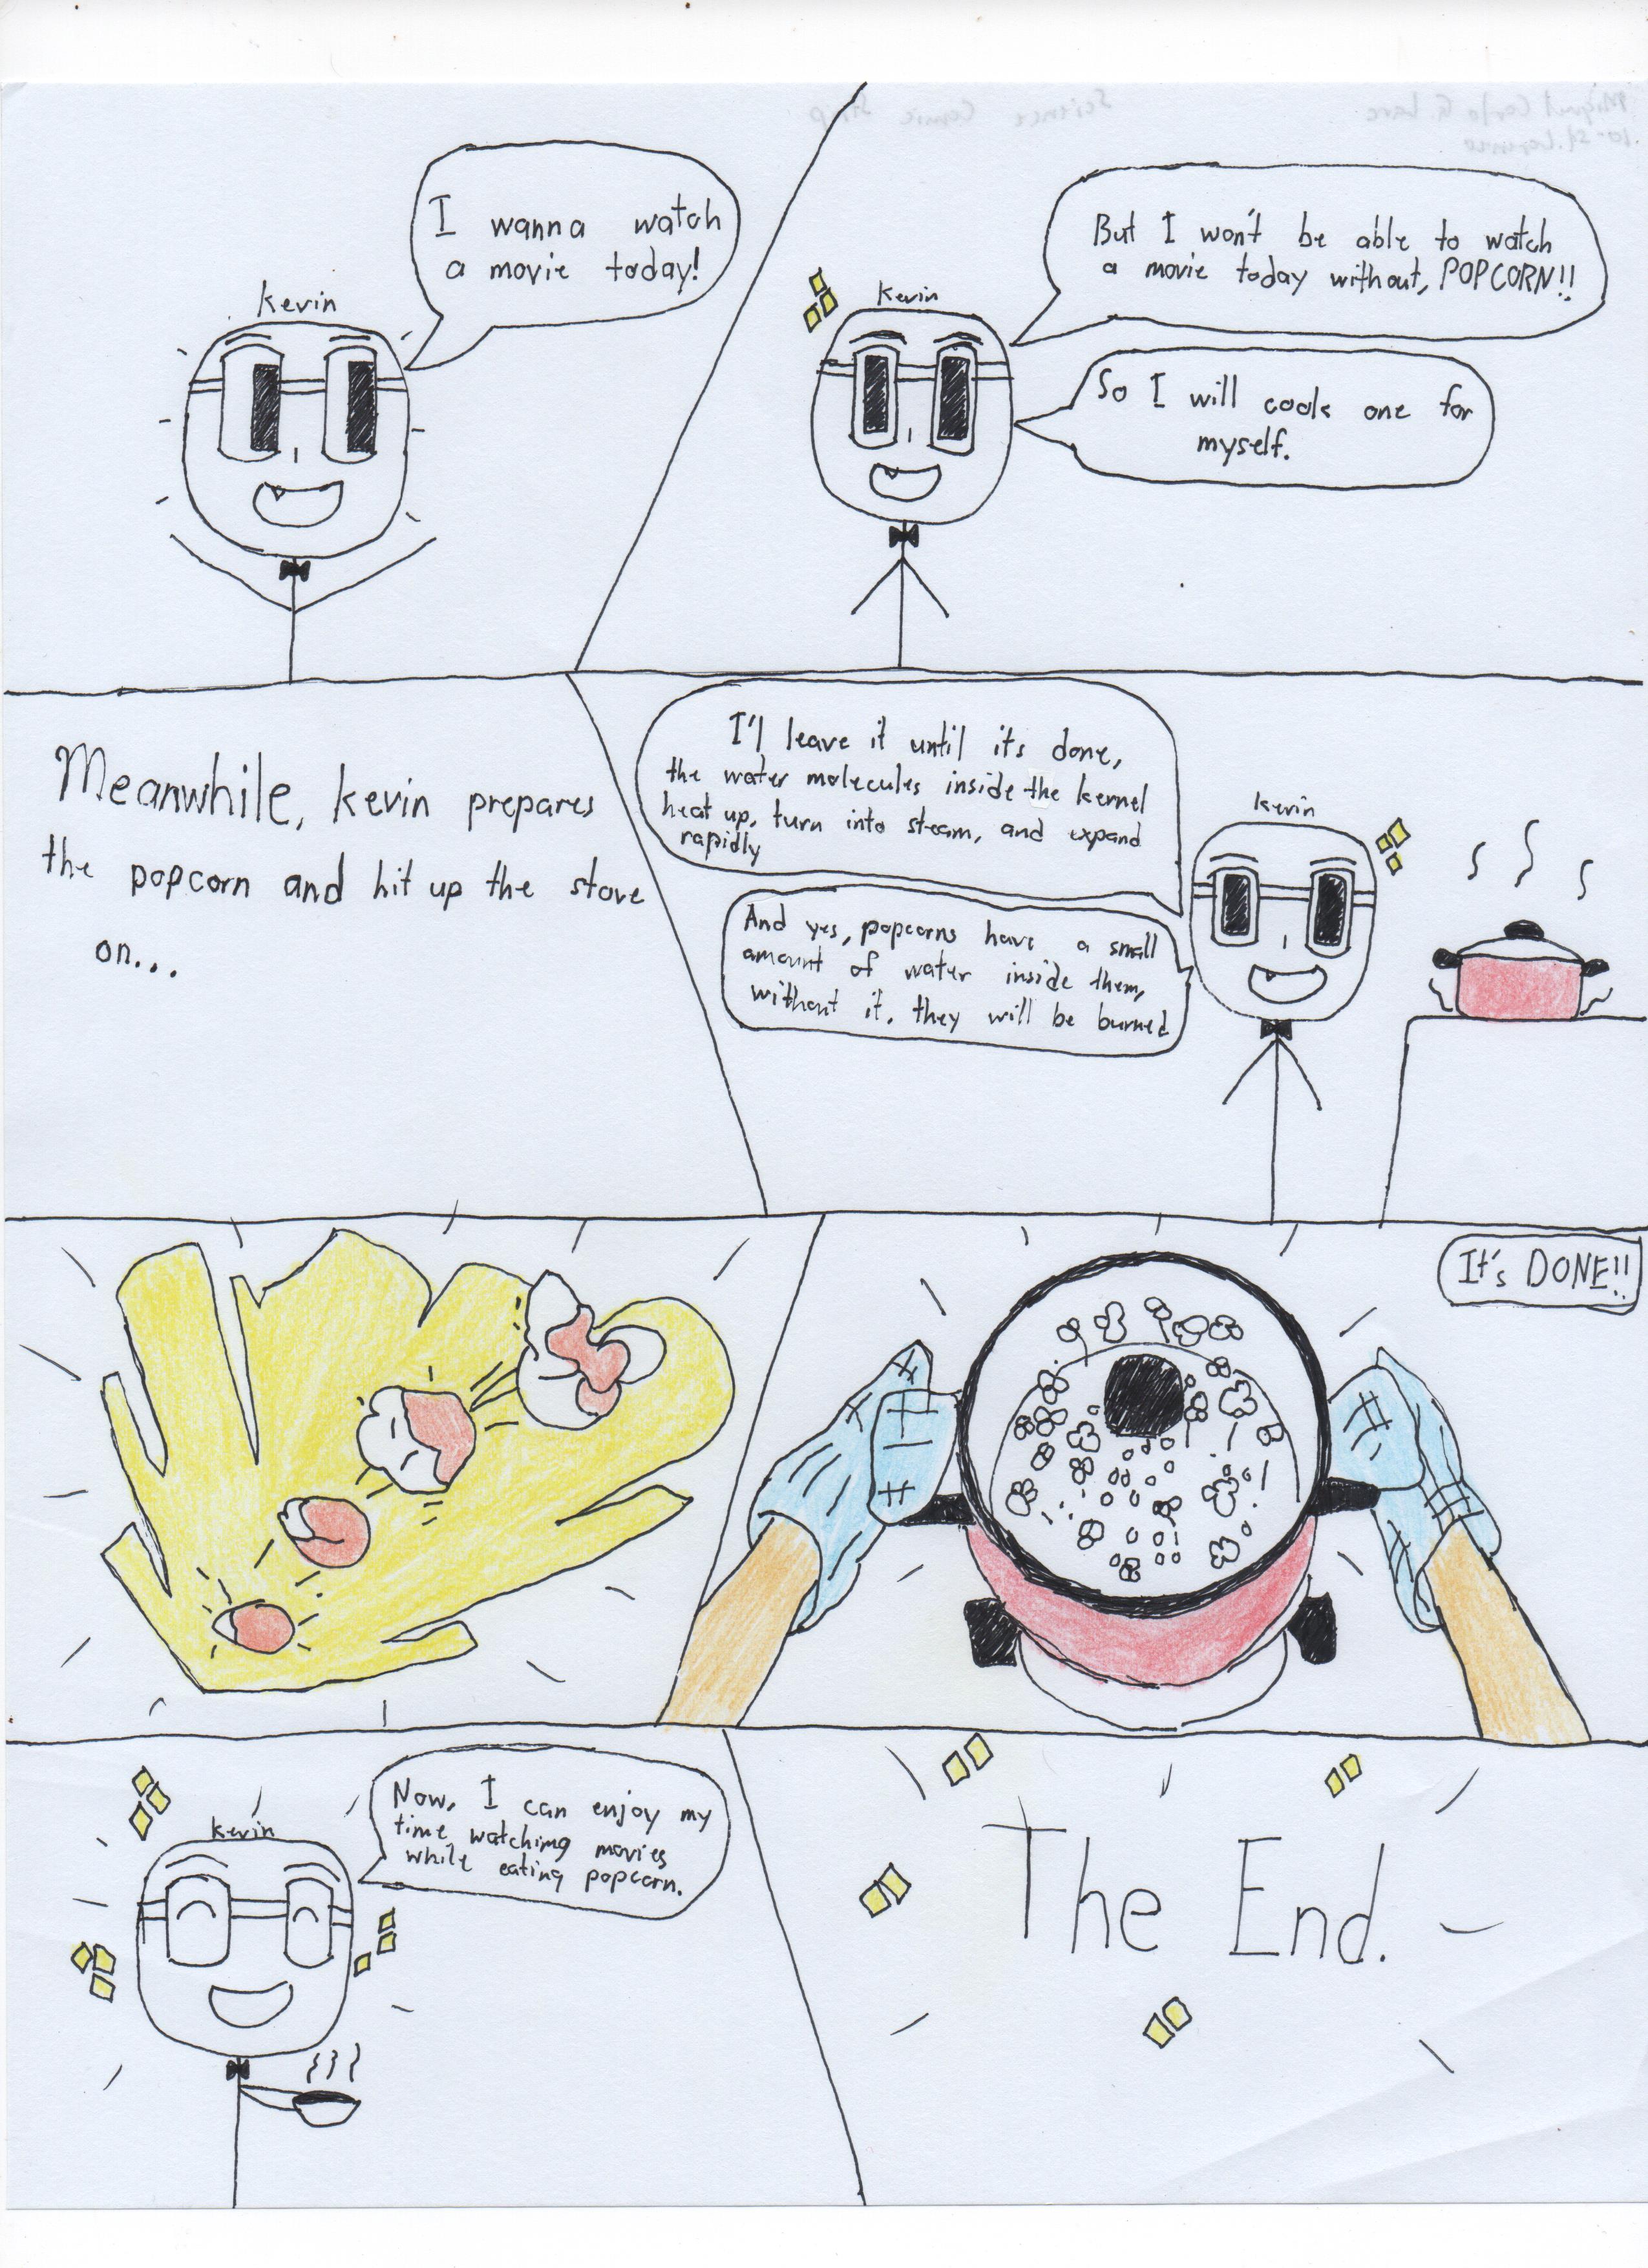 Science Comic Strip
kevin
I wanna watch
a movie today!
kevin
But I won't be able to watch
a movie today without, POPCORN!!
So I will cook one for
myself.
Meanwhile, kevin prepares
the popcorn and hit up the stove
on...
I'l leave it until its done,
the water molecules inside the kernel
heat up, turn into steam, and expand
rapidly
kevin
And yes, popcorns have a small
amount of water inside them,
without it, they will be burned
It's DONE!!
kevin
Now, I can enjoy my
time watching movies
while eating popcorn.
The End.